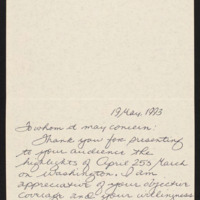 19 May, 1993
To whom it may concern:
Thank you for presenting
to your audience the
highlights of April 25's March
on Washington. I am
appreciative of your objective
coverage and your willingness